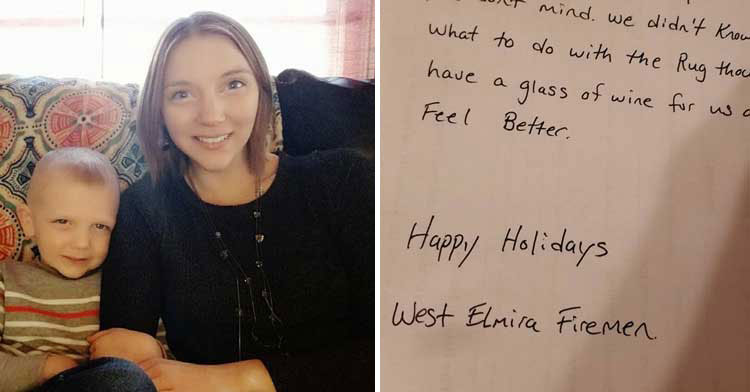 don't mind. we didn't Know
what to do with the Rug thou
have a glass of wine for us a
Feel Better.
Happy Holidays
West Elmira Firemen.